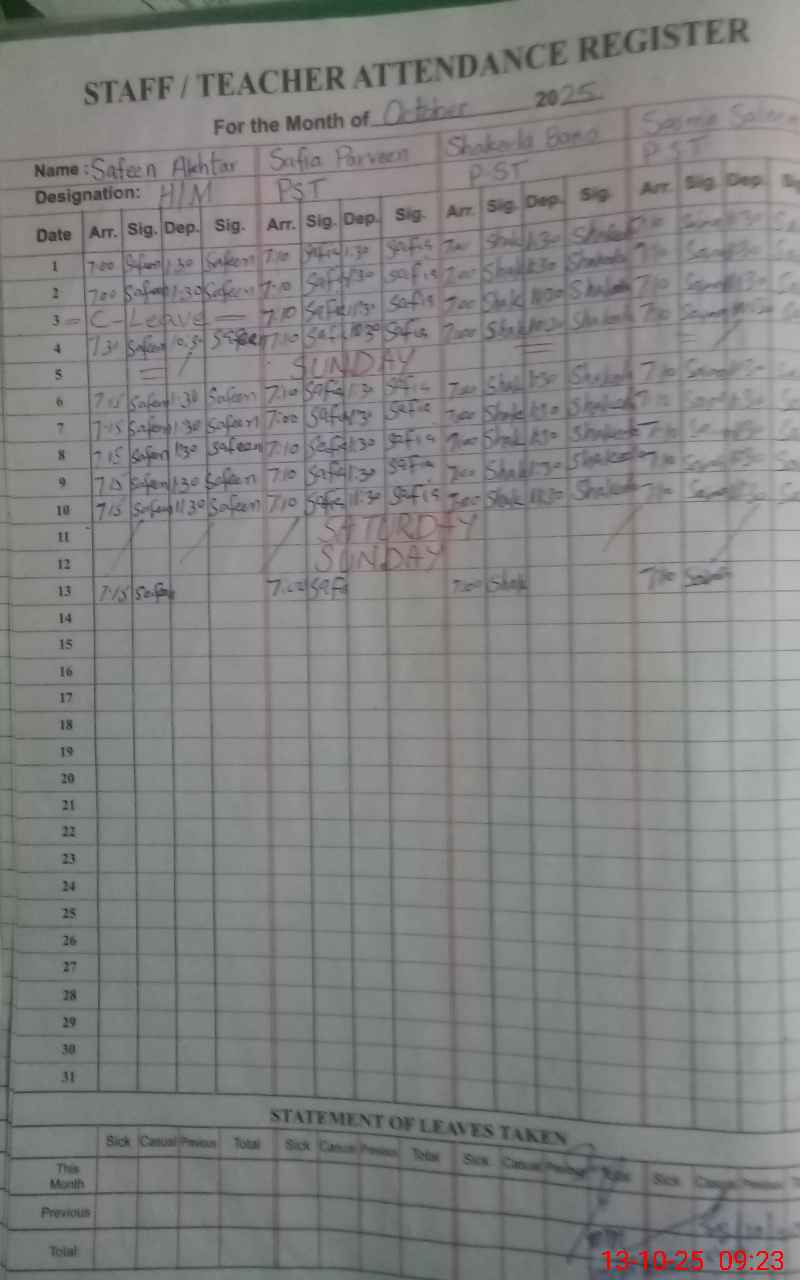 STAFF / TEACHER ATTENDANCE REGISTER
For the Month of October 2025
Name : Safeen Akhtar Safia Parveen Shakeela Bano
Designation: H/M PST PST PST
Date Arr. Sig. Dep. Sig. Arr. Sig. Dep. Sig. Arr. Sig. Dep. Sig. Arr. Sig. Dep.
1 7:00 Safeen 1:30 Safeen 7:10 Safia 1:30 Safia 7:00 Shak 1:30 Shakeela 7:10
2 7:00 Safeen 1:30 Safeen 7:10 Saf 1:30 Safia 7:00 Shak 1:30 Shakeela 7:10
3 = C-Leave = 7:10 Safia 11:30 Safia 7:00 Shak 11:30 Shakeela 7:10
4 7:30 Safeen 10:30 Safeen 7:10 Saf 10:30 Safia 7:00 Shak 10:30 Shakeela 7:10
5 SUNDAY
6 7:15 Safeen 1:30 Safeen 7:10 Safia 1:30 Safia 7:00 Shak 1:30 Shakeela 7:10
7 7:15 Safeen 1:30 Safeen 7:00 Safia 1:30 Safia 7:00 Shak 1:30 Shakeela 7:10
8 7:15 Safeen 1:30 Safeen 7:10 Safia 1:30 Safia 7:00 Shak 1:30 Shakeela 7:10
9 7:15 Safeen 1:30 Safeen 7:10 Safia 1:30 Safia 7:00 Shak 1:30 Shakeela 7:10
10 7:15 Safeen 11:30 Safeen 7:10 Safia 11:30 Safia 7:00 Shak 11:30 Shakeela 7:10
11 SATURDAY
12 SUNDAY
13 7:15 Safeen 7:00 Safi 7:00 Shak 7:10
14
15
16
17
18
19
20
21
22
23
24
25
26
27
28
29
30
31
STATEMENT OF LEAVES TAKEN
Sick Casual Previous Total Sick Casual Previous Total Sick Casual Previous Total Sick Casual Previous
This Month
Previous
Total
13-10-25 09:23